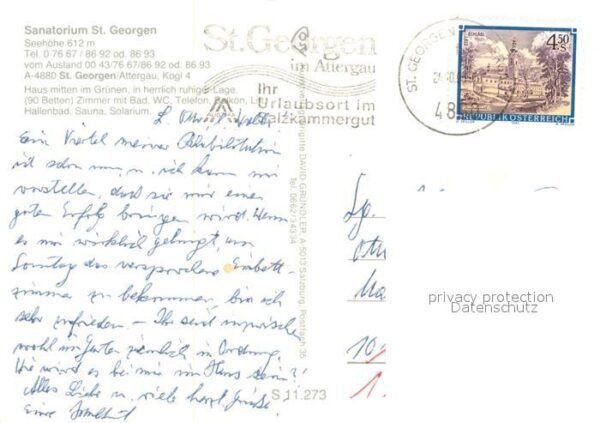 Sanatorium St. Georgen
Seehöhe 612 m
Tel. 0 76 67 / 86 92 od. 86 93
vom Ausland 00 43/76 67/86 92 od. 86 93
A-4880 St. Georgen/Attergau, Kogl 4
Haus mitten im Grünen, in herrlich ruhiger Lage.
(90 Betten) Zimmer mit Bad, WC, Telefon, Balkon,
Hallenbad, Sauna, Solarium.
St. Georgen
im Attergau
Ihr
Urlaubsort im
Salzkammergut
ST. GEORGEN
4.50
S
REPUBLIK ÖSTERREICH
Ein Viertel meiner Rehabilitation
ist schon um, u. ich kann mir
vorstellen, daß sie mir einen
guten Erfolg bringen wird. Wenn
es mir wirklich gelingt, am
Sonntag das versprochene Einbett-
zimmer zu bekommen, bin ich
sehr zufrieden – Ihr seid inzwischen
wohl in ziemlich in Ordnung.
Wie wird es bei mir im Haus sein?
Alles Liebe u. viele herzl. Grüße
Eure
DAVID GRUNDLER, A-5013 Salzburg, Postfach 36
Tel. 0662/34334
S 11.273
privacy protection
Datenschutz